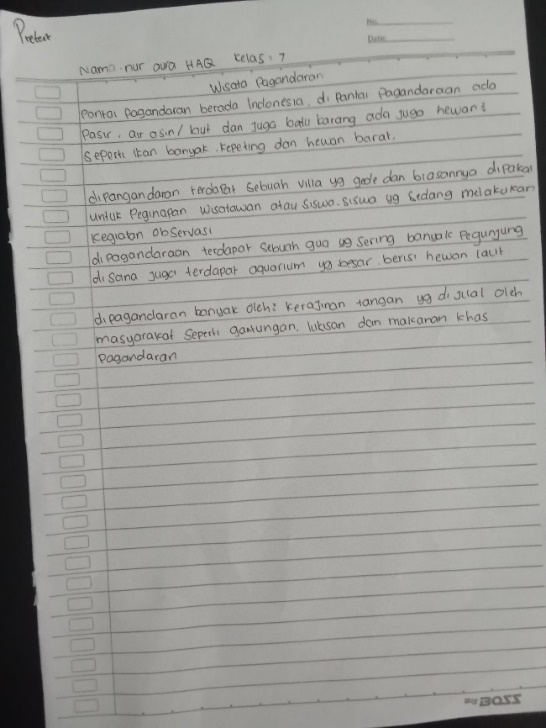 Pretest
No.
Date
Nama. nur aura HAQ Kelas: 7
Wisata Pagandaran
Pantai pagandaran berada Indonesia, di Pantai Pagandaraan ada
Pasir, air asin/laut dan juga batu karang ada juga hewan²
seperti ikan banyak, kepeting dan hewan barat.
dipangandaran terdapat sebuah villa yg gede dan biasannya dipakai
untuk Peginapan wisatawan atau siswa-siswa yg sedang melakukan
kegiatan observasi
dipagandaraan terdapat sebuah gua yg sering banyak Pegunjung
disana juga terdapat aquarium yg besar berisi hewan laut
dipagandaran banyak oleh² kerajinan tangan yg di jual oleh
masyarakat seperti gantungan, lukisan dan makanan khas
Pagandaran
BOSS